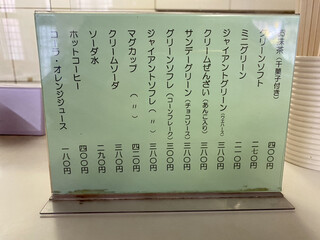 お抹茶（干菓子付き） 四〇〇円
グリーンソフト 二七〇円
ミニグリーン 二一〇円
ジャイアントグリーン（ウエハース） 三八〇円
クリームぜんざい（あんこ入り） 三八〇円
サンデーグリーン（チョコソース） 三八〇円
グリーンソフレ（コーンフレーク） 三〇〇円
ジャイアントソフレ（〃） 三八〇円
マグカップ（〃） 四二〇円
クリームソーダ 三八〇円
ソーダ水 二九〇円
ホットコーヒー 四〇〇円
コーラ・オレンジジュース 一八〇円